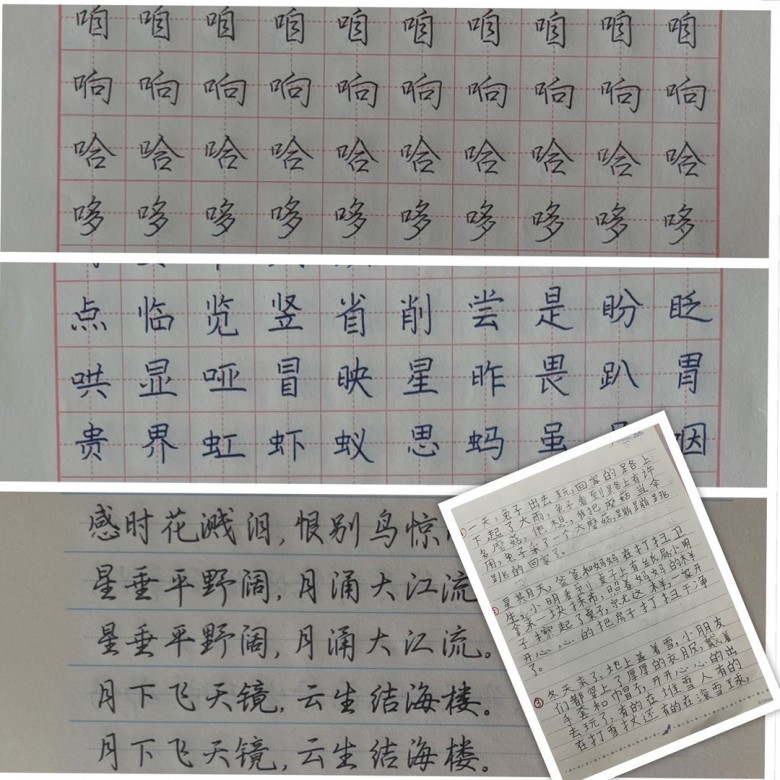 咱咱咱咱咱咱咱咱咱咱
响响响响响响响响响响
哈哈哈哈哈哈哈哈哈哈
哆哆哆哆哆哆哆哆哆哆
点临览竖省削尝是盼眨
哄显哑冒映星昨畏趴胃
贵界虹虾蚁思蚂虽咽
感时花溅泪,恨别鸟惊
星垂平野阔,月涌大江流
星垂平野阔,月涌大江流。
月下飞天镜,云生结海楼。
月下飞天镜,云生结海楼。
①一天,兔子出去玩,回家的路上
下起了大雨,兔子看到路上有许
多蘑菇,他想,我把蘑菇当伞
用,兔子采了一个大蘑菇,蹦蹦跳
跳的回家了。
②星期天,爸爸和妈妈在打扫卫
生,小明看到,桌子上有纸屑,小明
拿来一块抹布,照着妈妈的样
子擦起了桌子,就这样,一家开
开心心的把房子打扫干净
了。
③冬天来了,地上盖着雪,小朋友
们都穿上了厚厚的衣服,戴着
手套和帽子,开开心心的出
去玩了,有的在堆雪人有的
在打雪仗还有的在滚雪球。